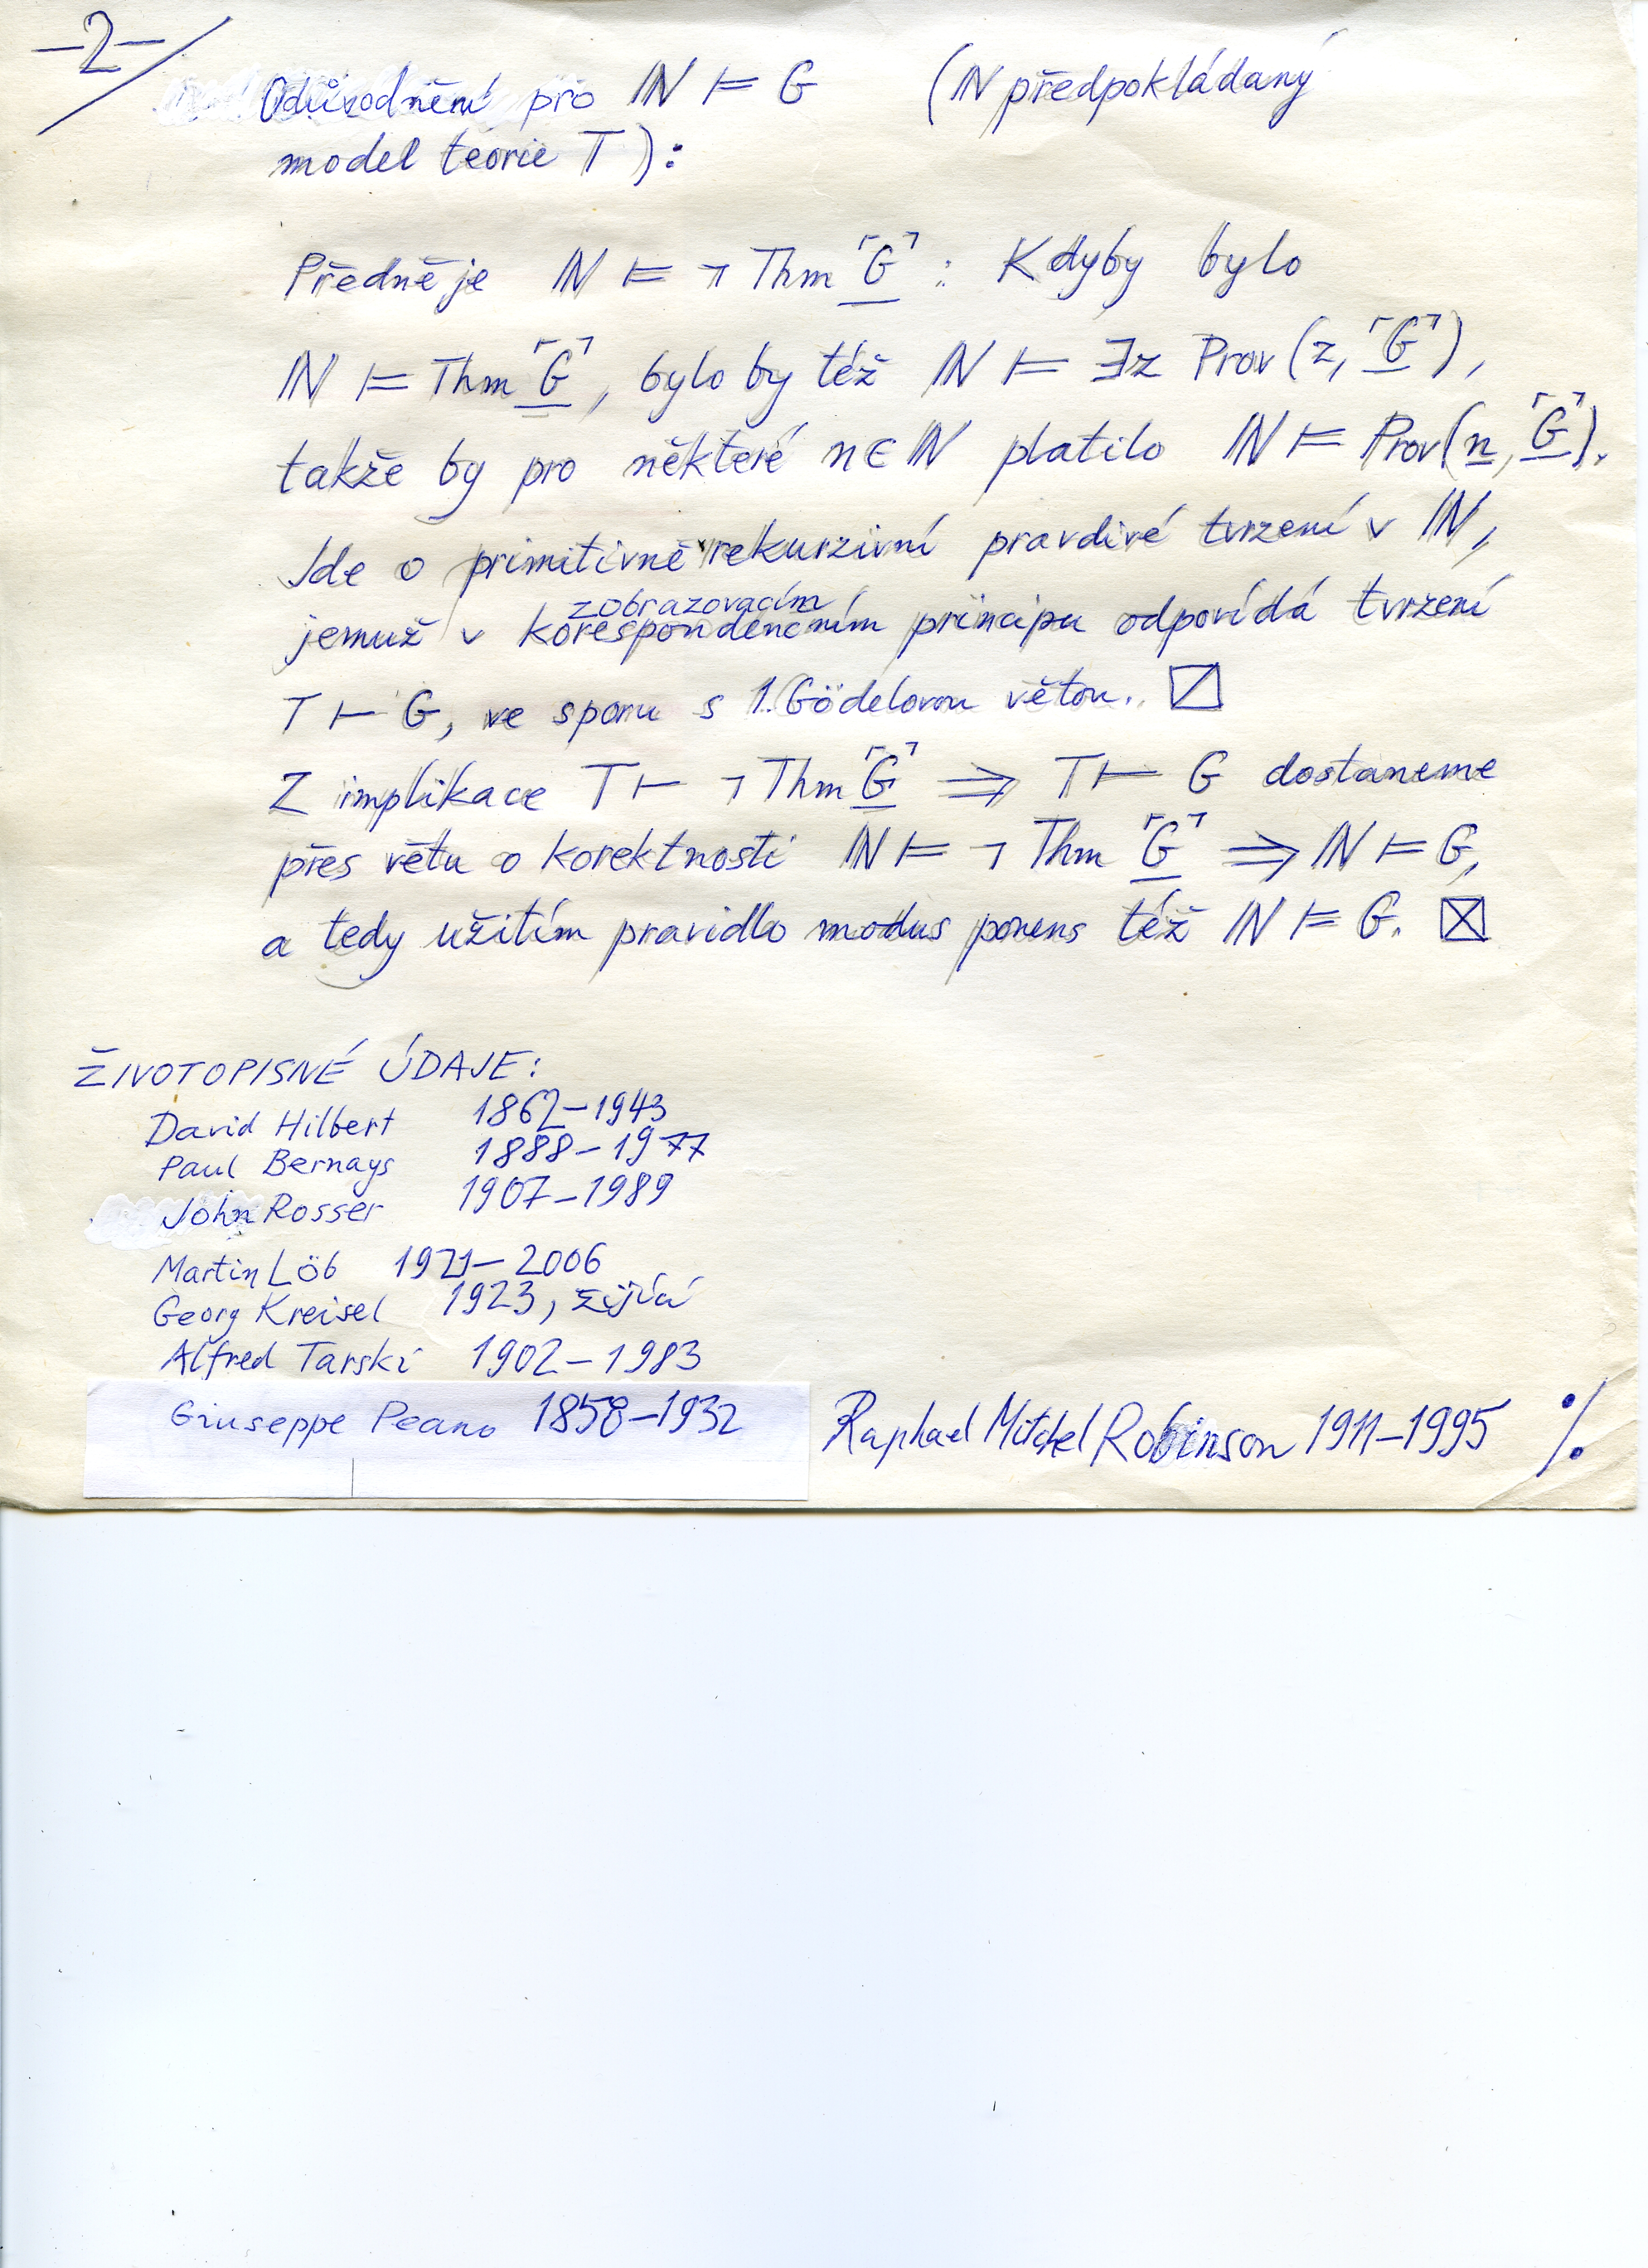 –2–/
Odůvodnění pro ℕ ⊨ G (ℕ předpokládaný
model teorie T):
Předně je ℕ ⊨ ¬ Thm ⌜G⌝ : Kdyby bylo
ℕ ⊨ Thm ⌜G⌝, bylo by též ℕ ⊨ ∃z Prov(z, ⌜G⌝),
takže by pro některé n ∈ ℕ platilo ℕ ⊨ Prov(n, ⌜G⌝).
Jde o primitivně rekurzivní pravdivé tvrzení v ℕ,
zobrazovacím
jemuž v korespondenčním principu odpovídá tvrzení
T ⊢ G, ve sporu s 1. Gödelovou větou. ⧄
Z implikace T ⊢ ¬ Thm ⌜G⌝ ⟹ T ⊢ G dostaneme
přes větu o korektnosti ℕ ⊨ ¬ Thm ⌜G⌝ ⟹ ℕ ⊨ G,
a tedy užitím pravidlo modus ponens též ℕ ⊨ G. ⊠
ŽIVOTOPISNÉ ÚDAJE:
David Hilbert 1862–1943
Paul Bernays 1888–1977
John Rosser 1907–1989
Martin Löb 1921–2006
Georg Kreisel 1923, žijící
Alfred Tarski 1902–1983
Giuseppe Peano 1858–1932 Raphael Mitchel Robinson 1911–1995 ·/.